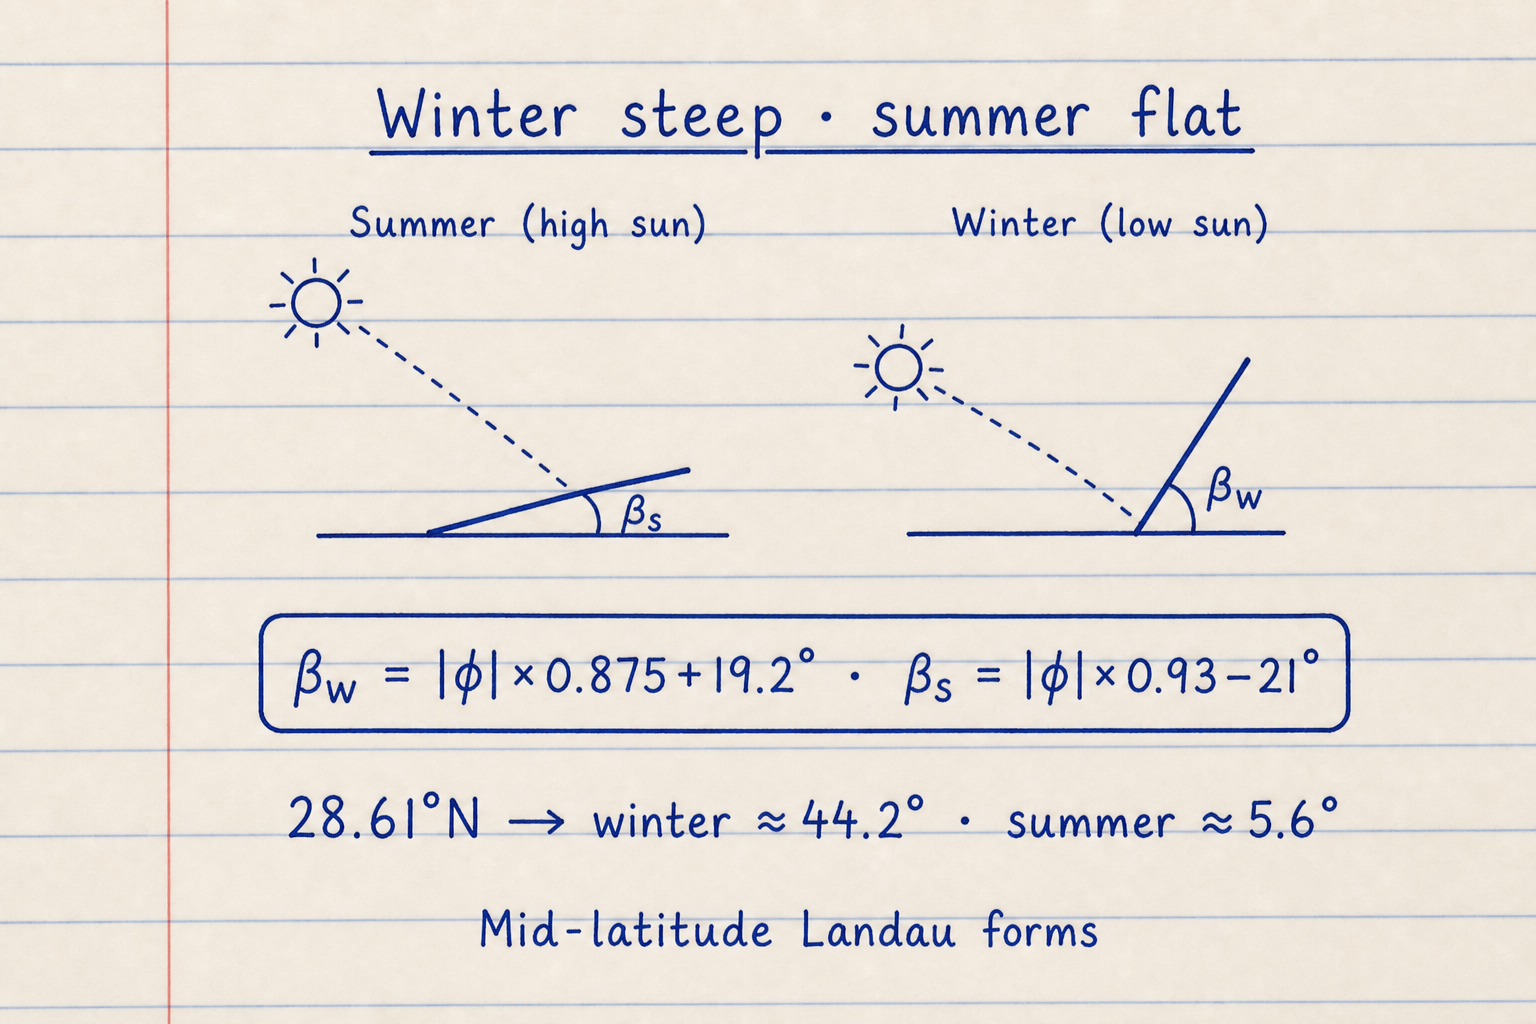 Winter steep · summer flat
Summer (high sun)
Winter (low sun)
βs
βw
βw = |ϕ| × 0.875 + 19.2° · βs = |ϕ| × 0.93 − 21°
28.61°N → winter ≈ 44.2° · summer ≈ 5.6°
Mid-latitude Landau forms